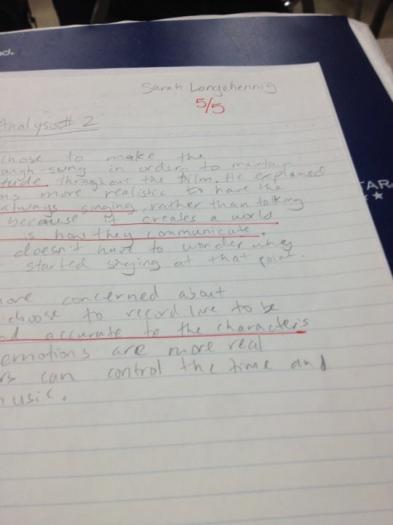 Sarah Longehennig
5/5
Analysis # 2
chose to make the
ough-sung in order to maintain
throughout the film. He explained
more realistic to have the
always singing rather than talking
because it creates a world
is how they communicate.
doesn't have to wonder why
started singing at that point.
ore concerned about
choose to record live to be
accurate to the characters
emotions are more real
rs can control the time and
music.